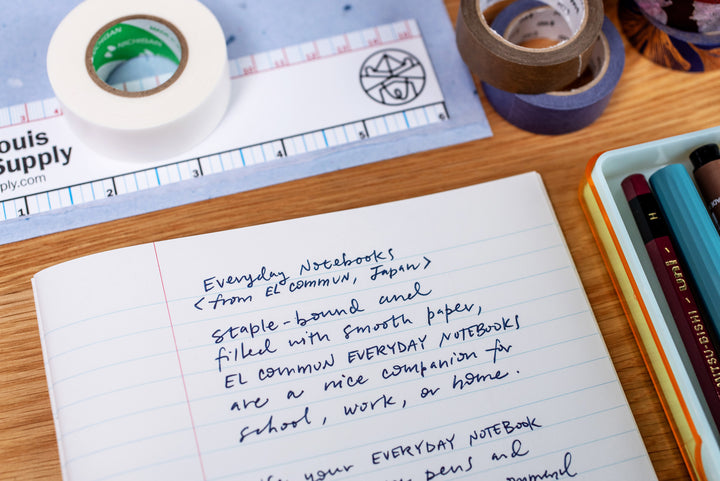 MICHIGAN
ARCHIGAN
ouis
Supply
ply.com
1
2
3
4
5
6
Everyday Notebooks
<from EL COMMUN, Japan>
staple-bound and
filled with smooth paper,
EL COMMUN EVERYDAY NOTEBOOKS
are a nice companion for
school, work, or home.
your EVERYDAY NOTEBOOK
pens and
H
Uni
MITSU-BISHI